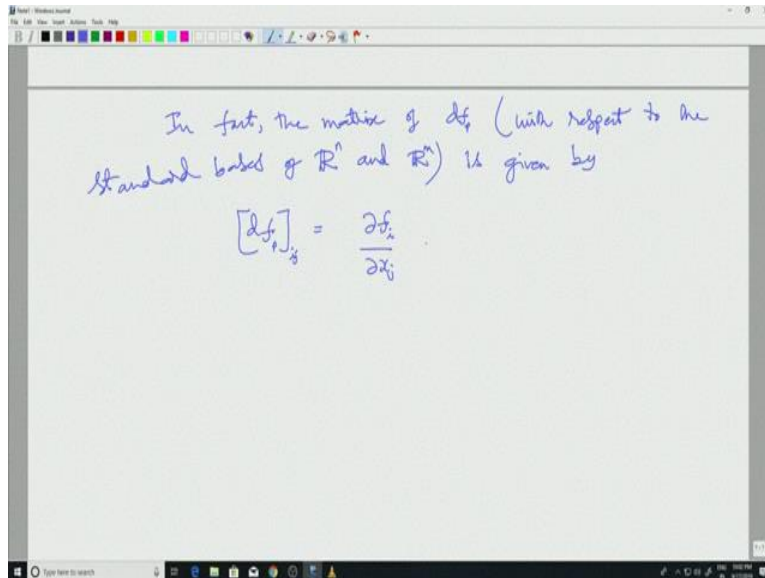 Note1 - Windows Journal
File Edit View Insert Actions Tools Help
In fact, the matrix of df_p (with respect to the
standard bases of ℝⁿ and ℝᵐ) is given by
[df_p]_ij = ∂f_i / ∂x_j
Type here to search